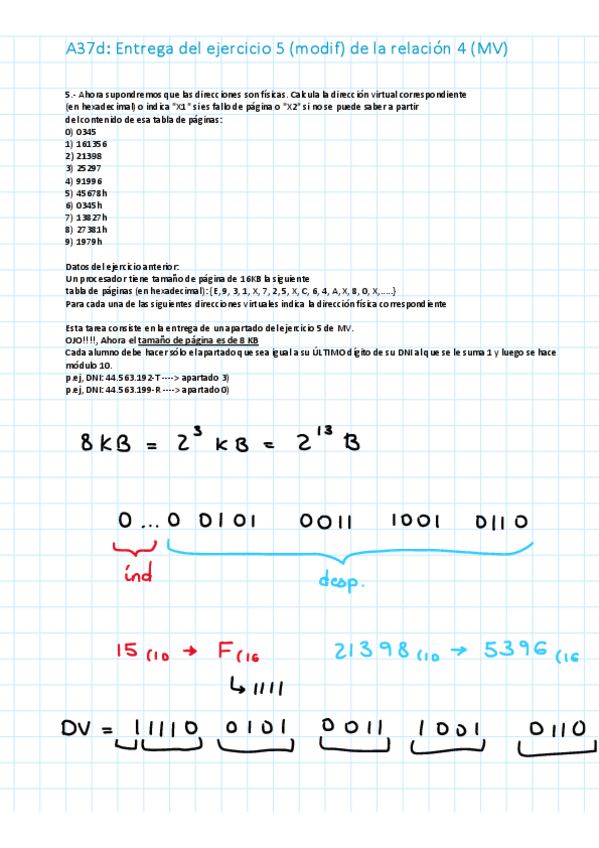 A37d: Entrega del ejercicio 5 (modif) de la relación 4 (MV)
5.- Ahora supondremos que las direcciones son físicas. Calcula la dirección virtual correspondiente
(en hexadecimal) o indica "X1" si es fallo de página o "X2" si no se puede saber a partir
del contenido de esa tabla de páginas:
0) 0345
1) 161356
2) 21398
3) 25297
4) 91996
5) 45678h
6) 0345h
7) 13827h
8) 27381h
9) 1979h
Datos del ejercicio anterior:
Un procesador tiene tamaño de página de 16KB la siguiente
tabla de páginas (en hexadecimal): {E, 9, 3, 1, X, 7, 2, 5, X, C, 6, 4, A, X, 8, 0, X,.....}
Para cada una de las siguientes direcciones virtuales indica la dirección física correspondiente
Esta tarea consiste en la entrega de un apartado del ejercicio 5 de MV.
OJO!!!!, Ahora el tamaño de página es de 8 KB
Cada alumno debe hacer sólo el apartado que sea igual a su ÚLTIMO dígito de su DNI al que se le suma 1 y luego se hace
módulo 10.
p.ej, DNI: 44.563.192-T ----> apartado 3)
p.ej, DNI: 44.563.199-R ----> apartado 0)
8 KB = 2^3 KB = 2^13 B
0 ... 0 0101 0011 1001 0110
ind desp.
15 (10 → F (16 21398 (10 → 5396 (16
↳ 1111
DV = 11110 0101 0011 1001 0110